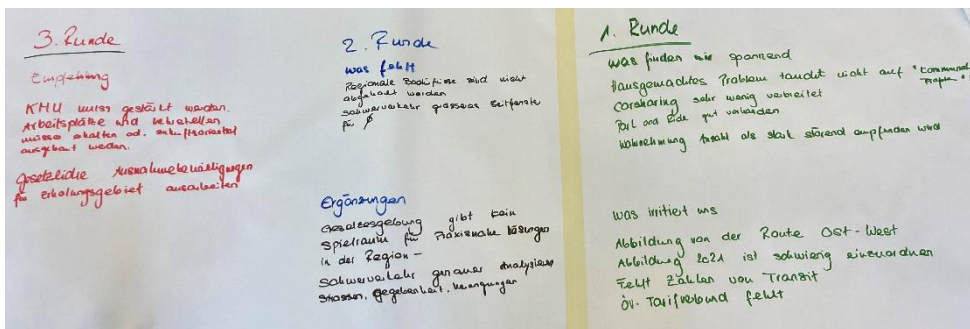 3. Runde
Empfehlung
KMU muss gestärkt werden.
Arbeitsplätze und Lehrstellen
müsse erhalten od. zukunftsorientiert
ausgebaut werden.
Gesetzliche Ausnahmebewilligungen
für Erholungsgebiet ausarbeiten
2. Runde
was fehlt
Regionale Bedürfnisse sind nicht
abgeholt worden
Schwerverkehr grösseres Zeitfenster
für ø
Ergänzungen
Gesetzesgebung gibt kein
Spielraum für Praxisnahe Lösungen
in der Region -
Schwerverkehr genauer Analysieren
Strassen, gegebenheit,
1. Runde
was finden wir spannend
Hausgemachtes Problem taucht nicht auf "Communal
Carsharing sehr wenig verbreitet
Park and Ride gut vorhanden
Wahrnehmung Anzahl als stark störend empfunden wird
was irritiert uns
Abbildung von der Route Ost - West
Abbildung 2c21 ist schwierig einzuordnen
Fehlt Zahlen von Transit
öv. Tarifverbund fehlt